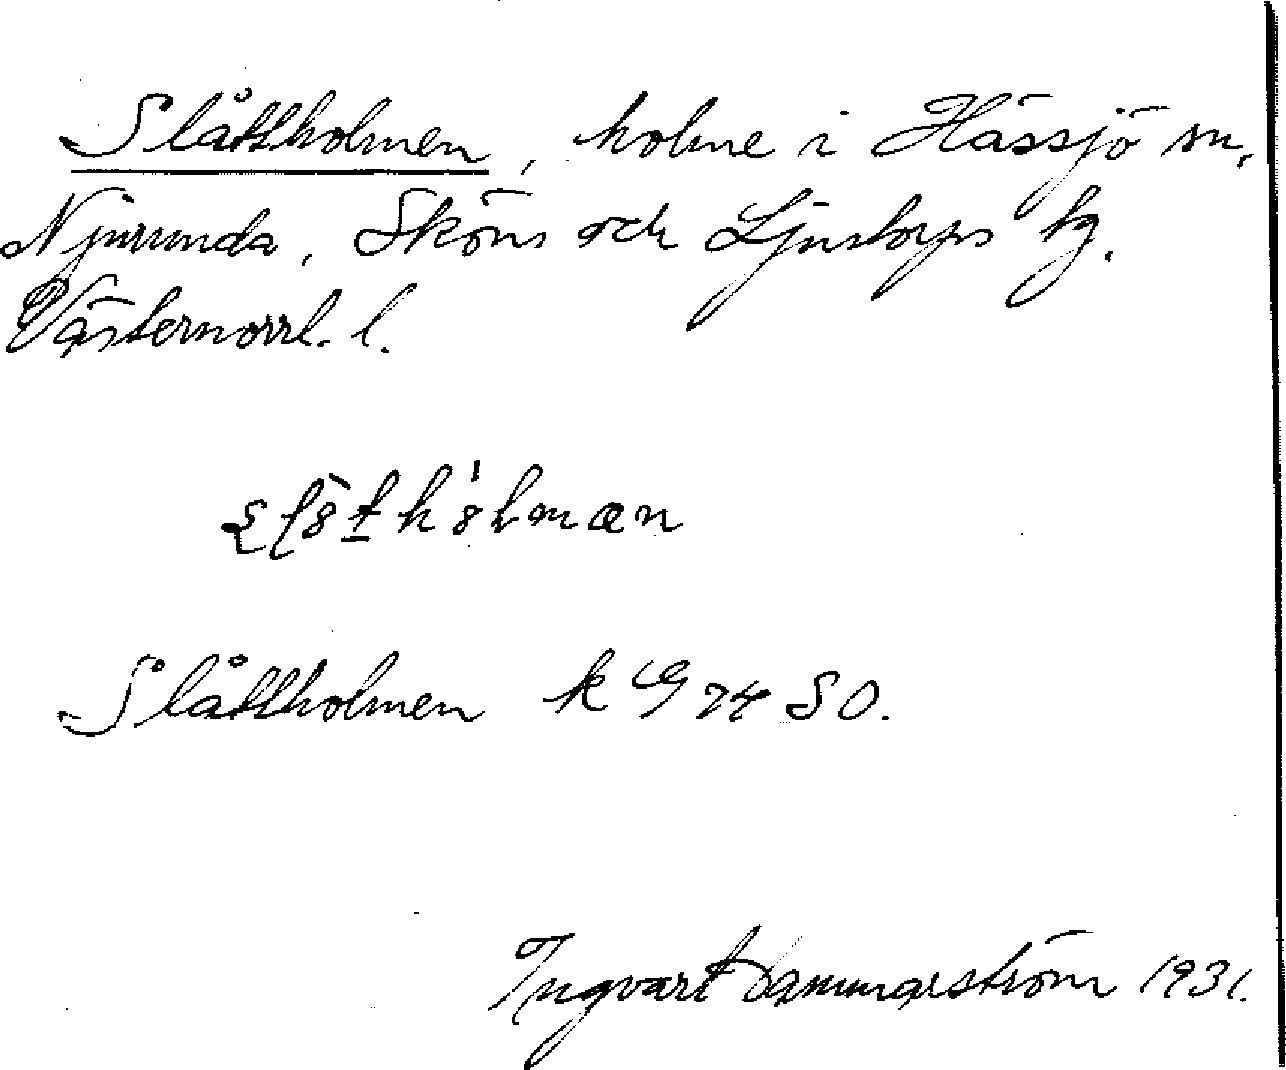 Slåttholmen, holme i Hässjö sn,
Njurunda, Sköns och Ljustorps tg.
Västernorrl. l.
Slåttholmen k G 74 SO.
Ingvart Hammarström 1931.